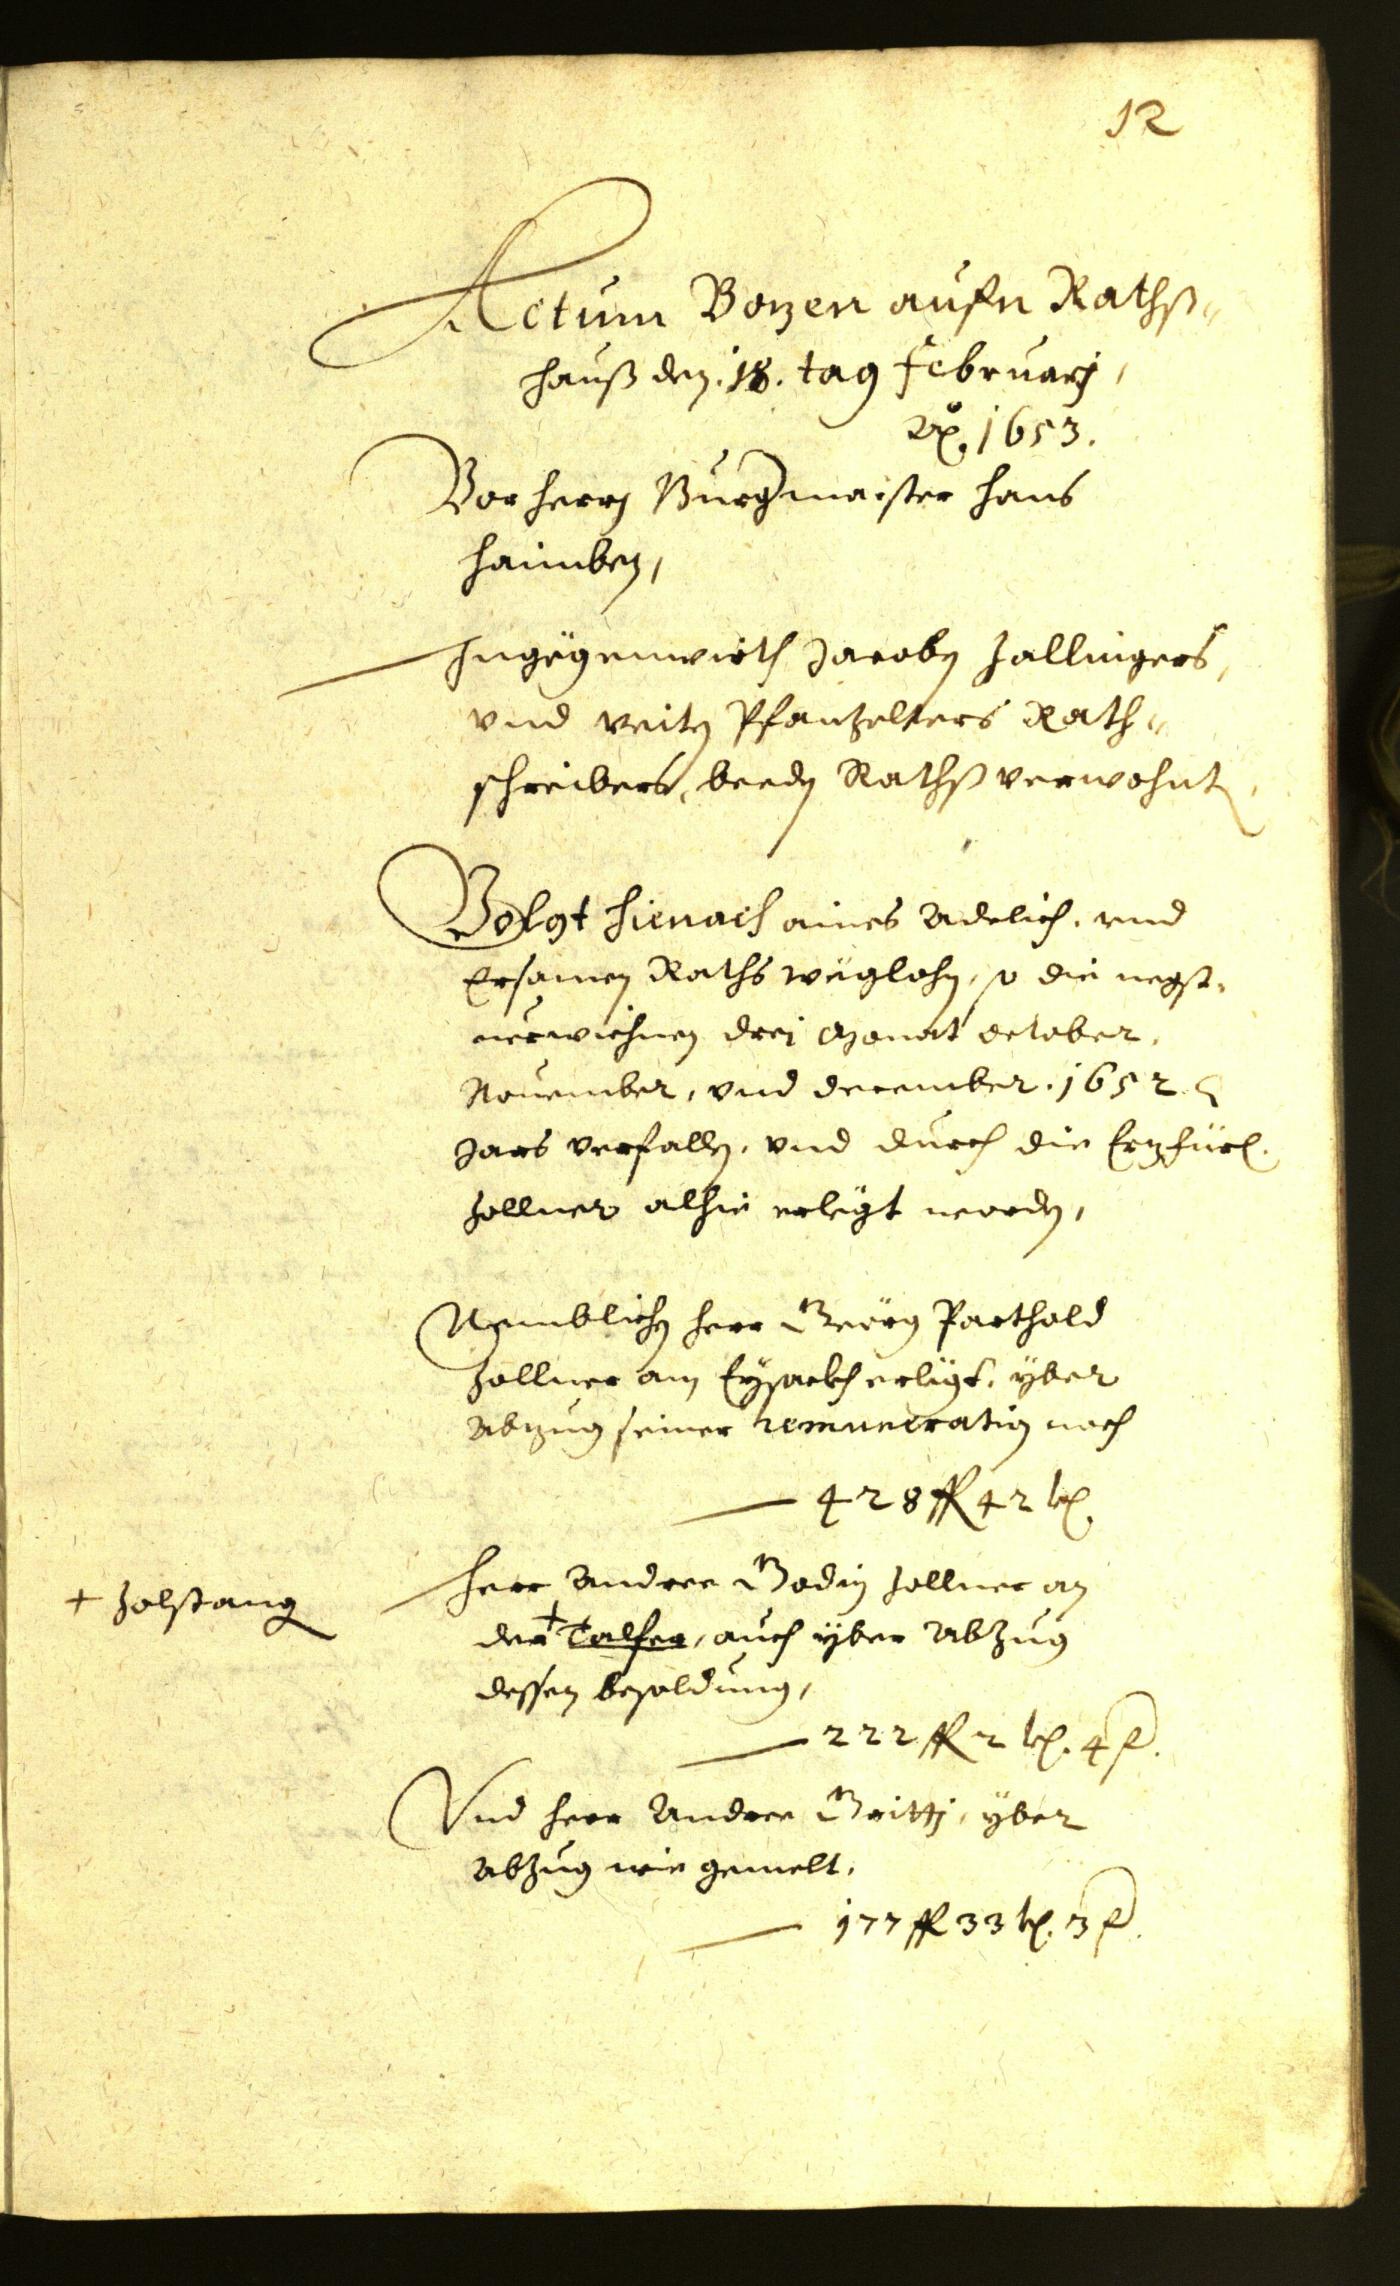 12
Actum Bozen aufn Rathß„
hauß den. 18. tag Februarj,
Aō. 1653.
Vor herrn Burgmaister Hans
Haimben,
Ingegenwirth Jacoben Zallingers,
vnd Veiten Pfanzelters Rath„
schreibers, beeden Rathß verwohnten,
Volgt hienach aines Adelich. vnd
Ersamen Raths weglohn, so die negst„
uerwichnen drej Monat October,
Nouember, vnd December. 1652.
Jars verfallen, vnd durch die Erzfürl.
Zollner alhie erlegt worden,
Nemblichen herr Georg Parthold
Zollner am Eysackh erlegt, yber
Abzug seiner remuneration noch
428 fl 42 kr.
+ Zolstang
Herr Andree Godin Zollner an
der + Talfer, auch yber Abzug
dessen besoldung,
222 fl 2 kr. 4 f.
Vnd herr Andree Gritti, yber
Abzug wie gemelt,
177 fl 33 kr. 3 f.